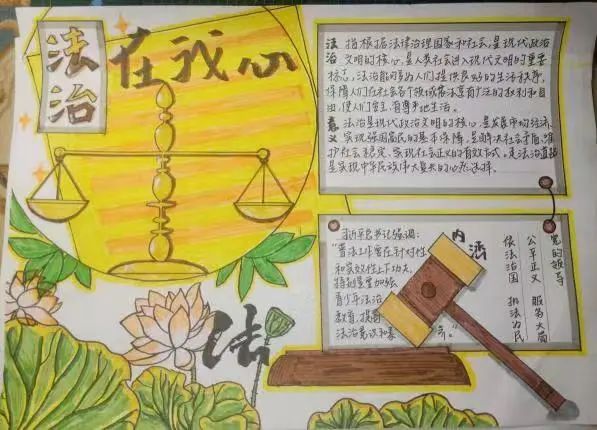 法治
在我心
法 指根据法律治理国家和社会,是现代政治
治 文明的核心,是人类社会进入现代文明的重要
标志,法治能够为人们提供良好的生活秩序,
保障们在社会各个领域依法享有广泛的权利和自
由,使人们安全、有尊严地生活。
意 法治是现代政治文明的核心,是发展市场经济、
义 实现强国富民的基本保障,是解决社会矛盾、维
护社会稳定、实现社会正义的有效方式。走法治道路
是实现中华民族伟大复兴的必然选择。
内涵
习近平总书记强调:
"普法工作要在针对性
和实效性上下功夫,
特别是要加强
青少年法治
教育,提高
法治意识和
党的领导
公平正义 服务大局
依法治国 执法为民
法